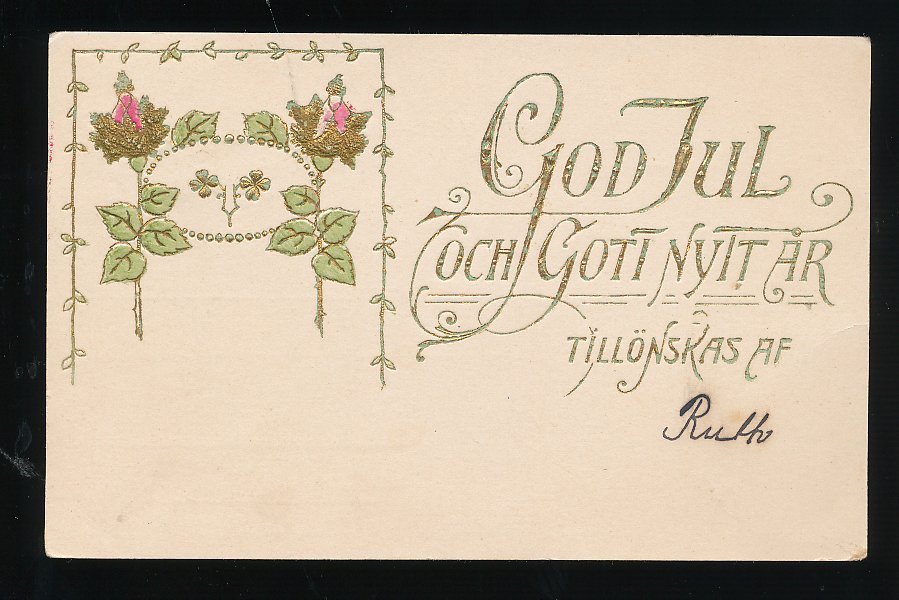 GOD JUL
OCH GOTT NYTT ÅR
TILLÖNSKAS AF
Ruth